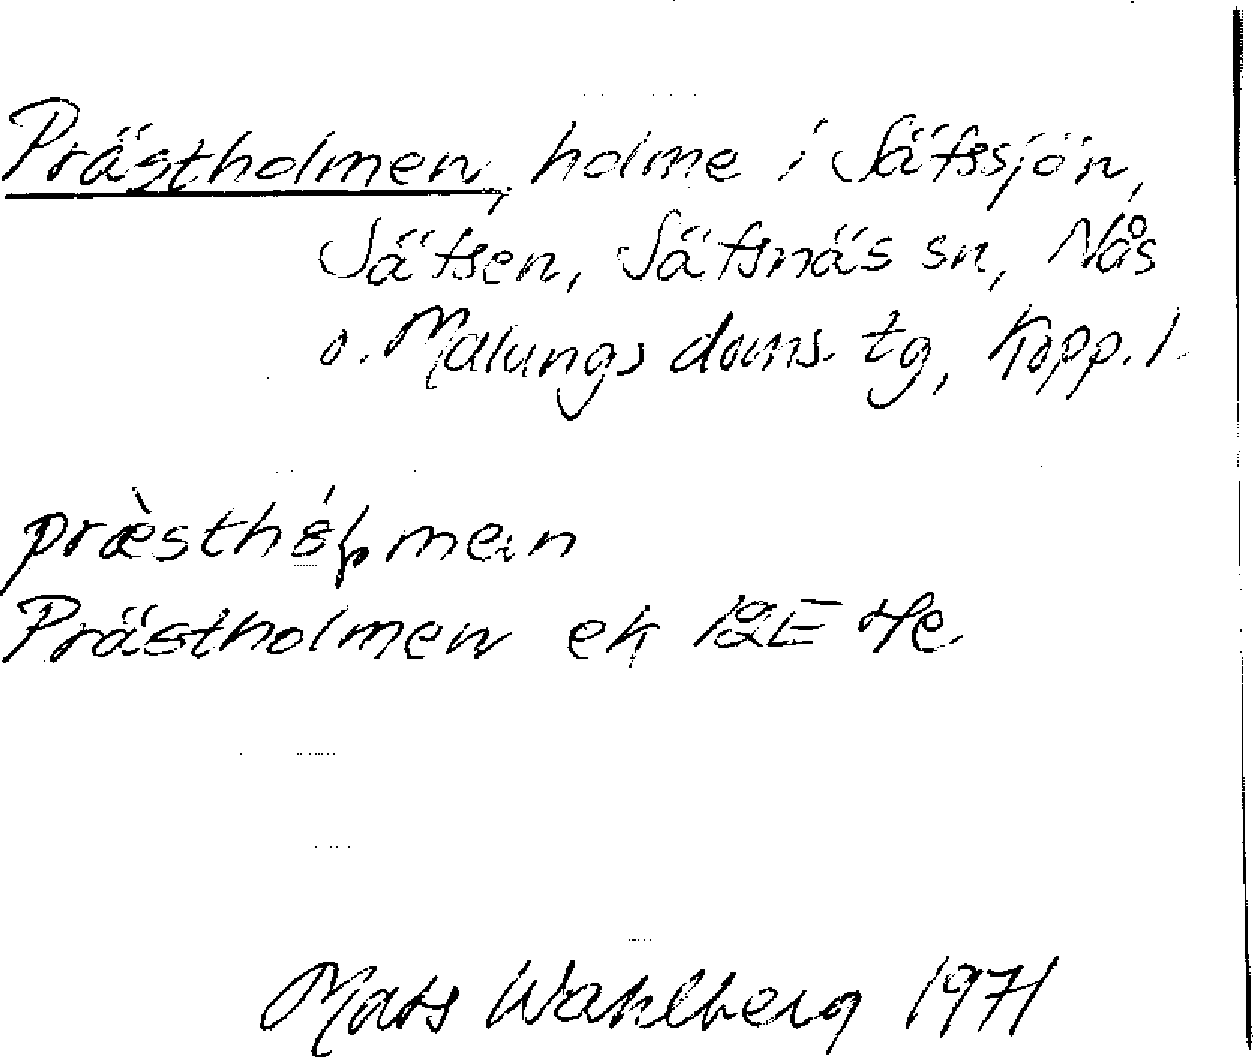 Prästholmen, holme i Sätssjön,
Sätsen, Sätsnäs sn, Nås
o. Malungs doms. tg, Kopp. l.
præ̀sthól̥men
Prästholmen ek 12E 4e
Mats Wahlberg 1971